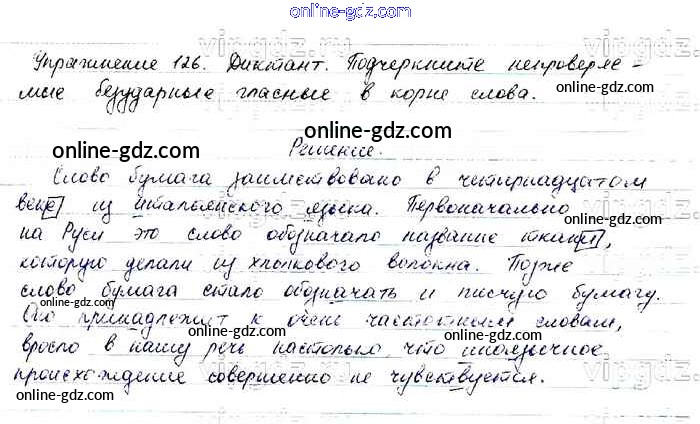 online-gdz.com
Упражнение 126. Диктант. Подчеркните непроверяе-
мые безударные гласные в корне слова.
online-gdz.com
online-gdz.com
online-gdz.com
Решение.
online-gdz.com
Слово бумага заимствовано в четырнадцатом
веке из итальянского языка. Первоначально
online-gdz.com
на Руси это слово обозначало название ткани,
которую делали из хлопкового волокна. Позже
online-gdz.com
слово бумага стало обозначать и писчую бумагу.
online-gdz.com
Оно принадлежит к очень частотным словам,
вросло в нашу речь настолько, что иноязычное
происхождение совершенно не чувствуется.
online-gdz.com
online-gdz.com